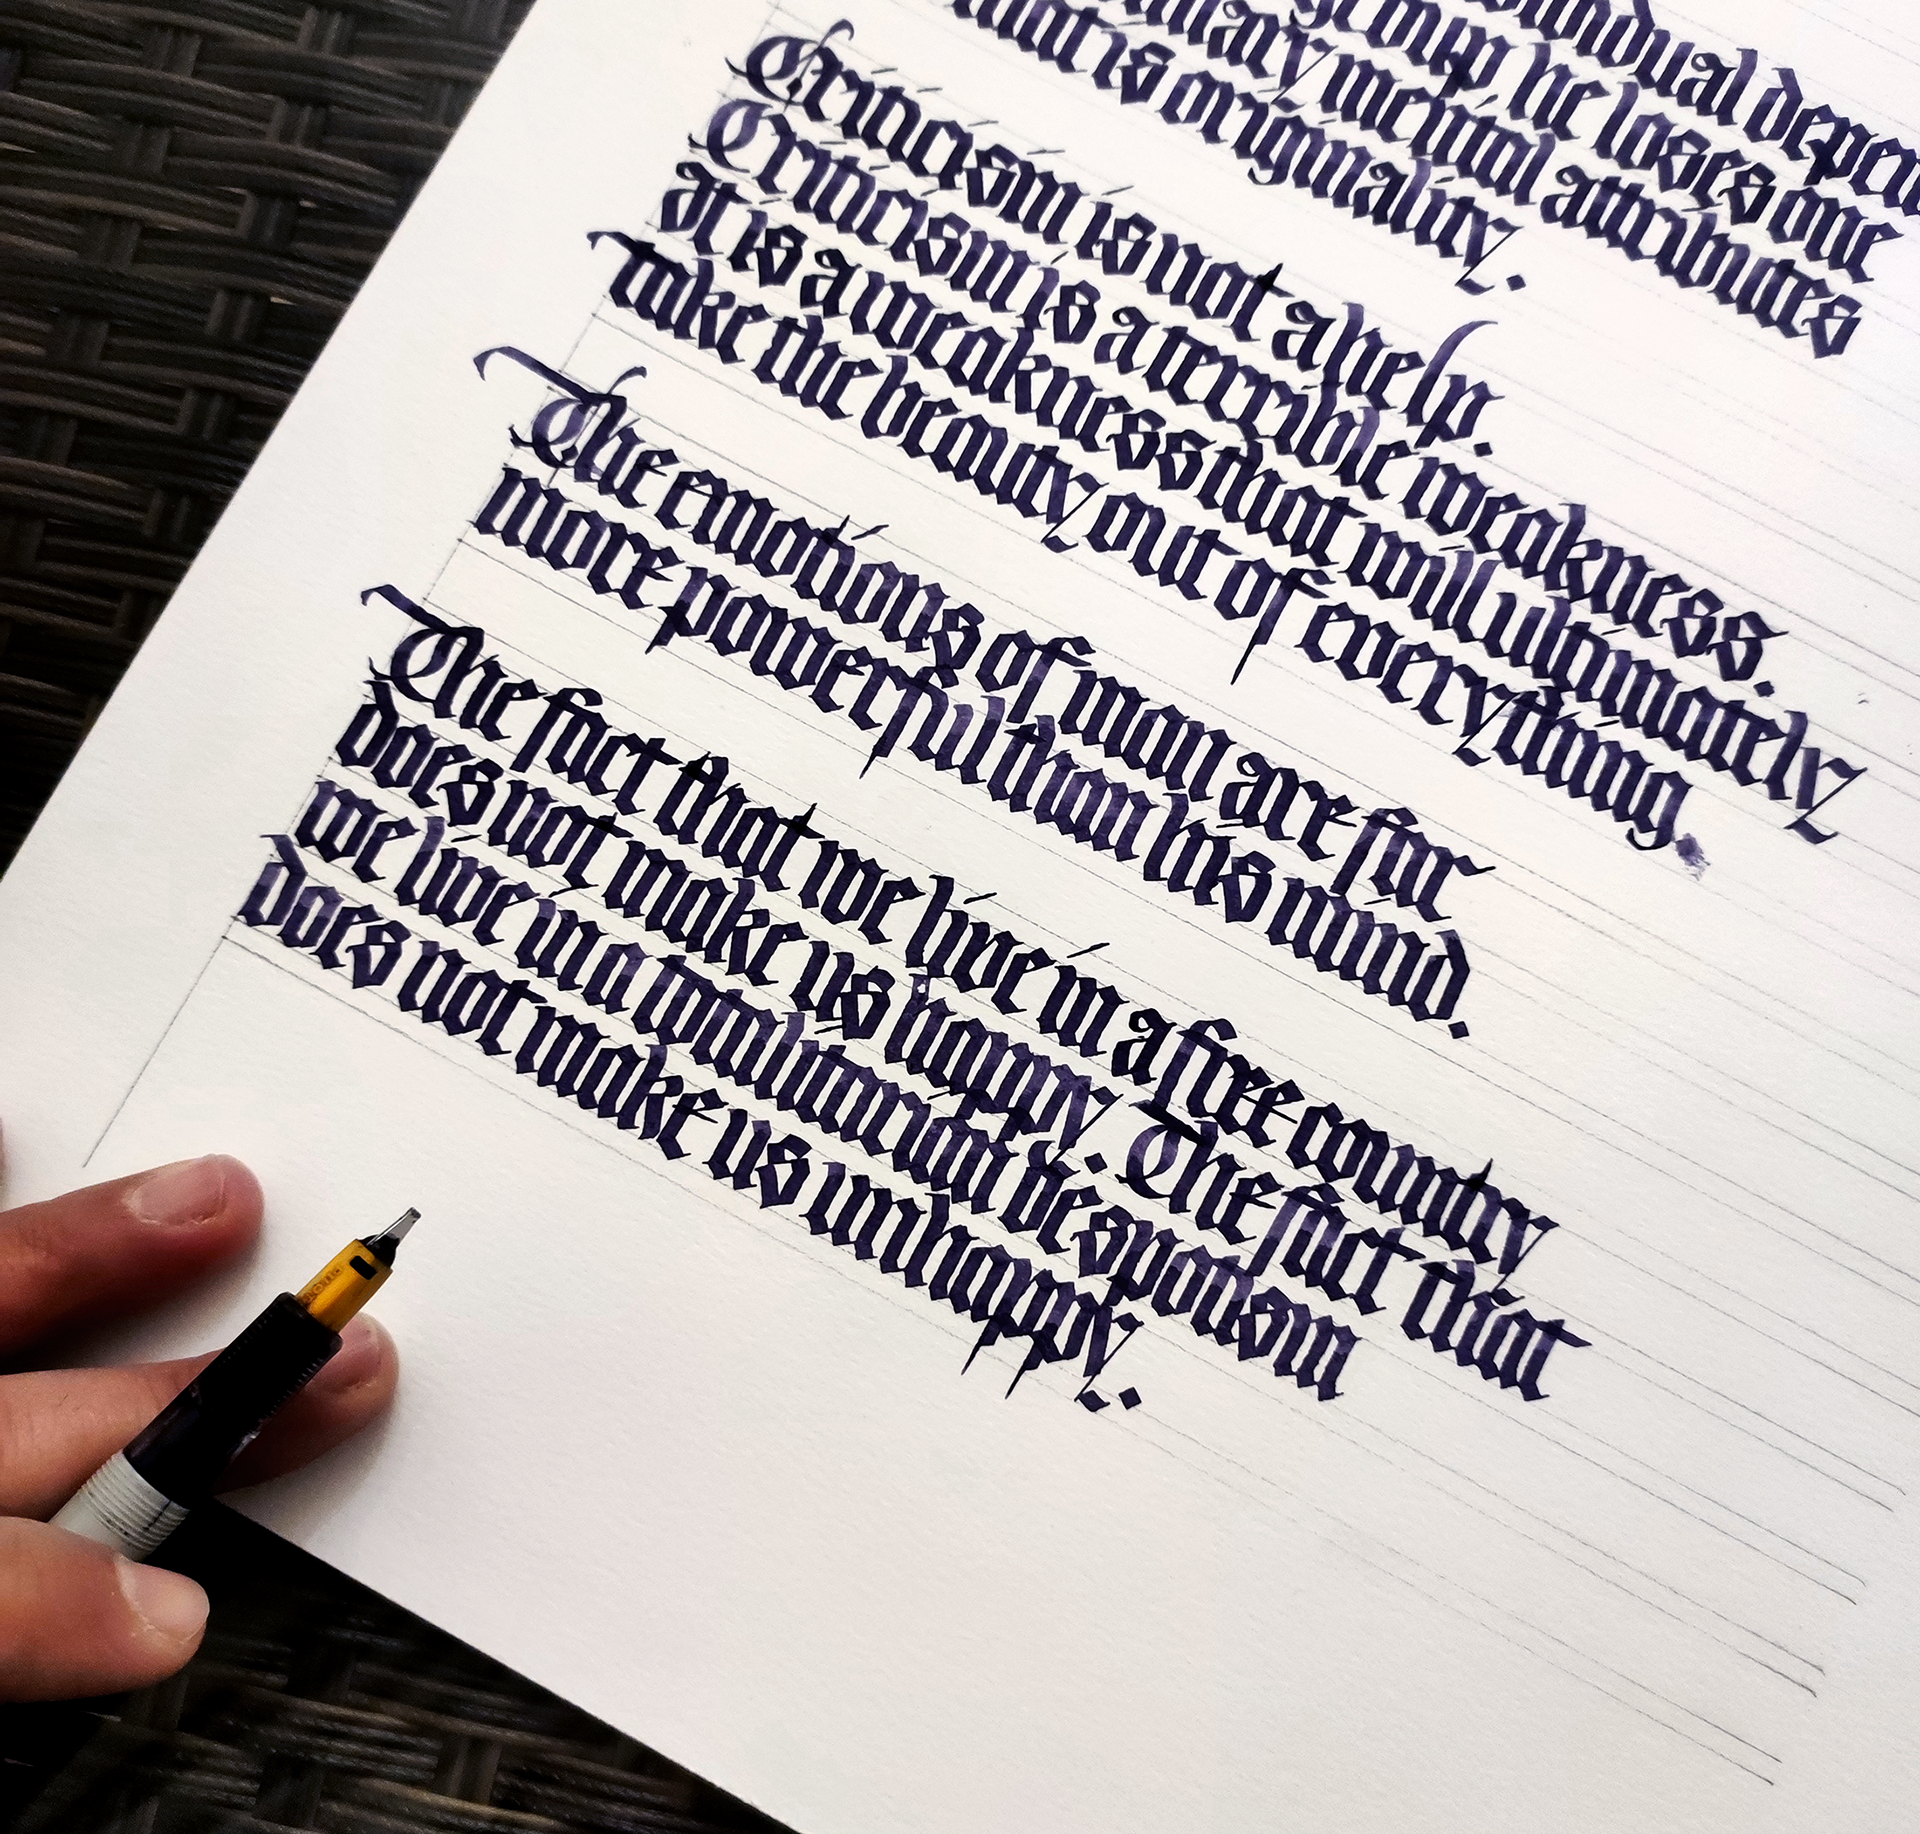 individual depen
group he loses one
mental attributes
that is originality.
Criticism is not a help.
Criticism is a terrible weakness.
at is a weakness that will ultimately
take the beauty out of everything.
The emotions of man are far
more powerful than his mind.
The fact that we live in a free country
does not make us happy. The fact that
we live in a totalitarian despotism
does not make us unhappy.